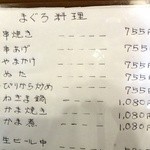 まぐろ料理
串焼き ---- 755円
串あげ ---- 755
やまかけ ---- 755
ぬた ---- 755
ぴりから炒め ---- 755
ねぎま鍋 ---- 1,080
かま焼き ---- 1,080円
かま煮 ---- 1,080
生ビール中